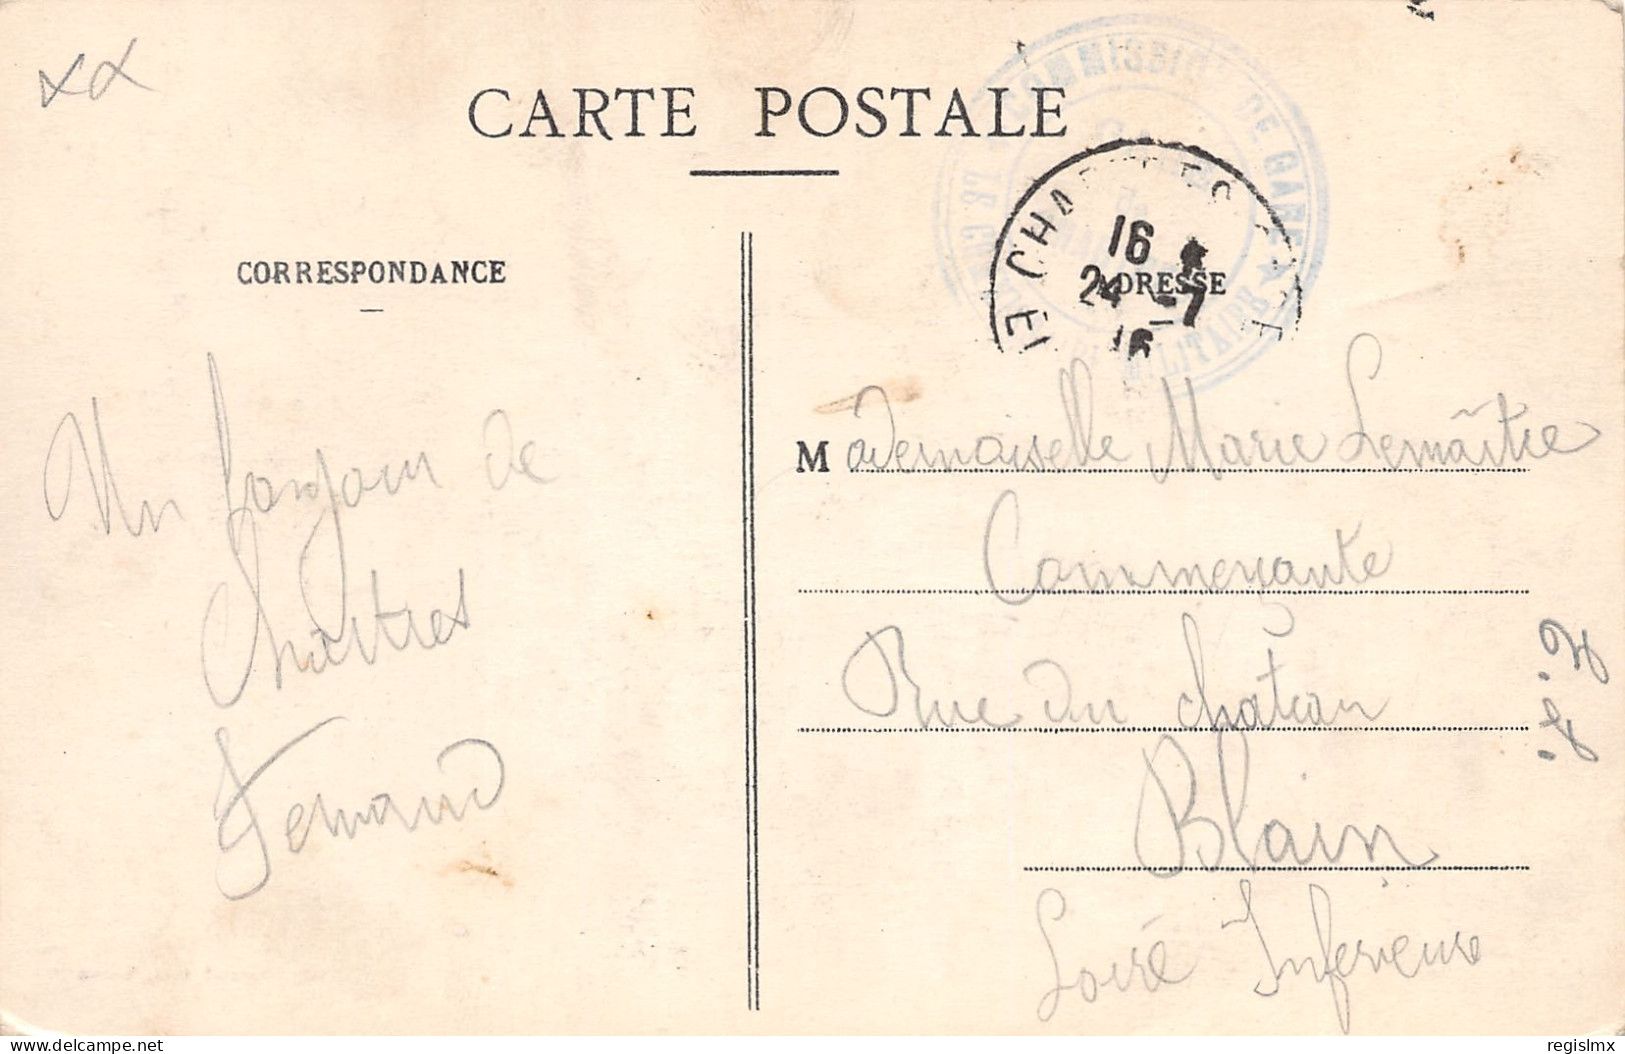 CARTE POSTALE
COMMISSION DE GARE
MILITAIRE
CHARTRES GARE
16
24 -7
16
CORRESPONDANCE
ADRESSE
Un bonjour de
Chartres
Fernand
Mademoiselle Marie Lemaître
Commerçante
Rue du château
Blain
Loire Inférieure
Website : delcampe.net
regislmx